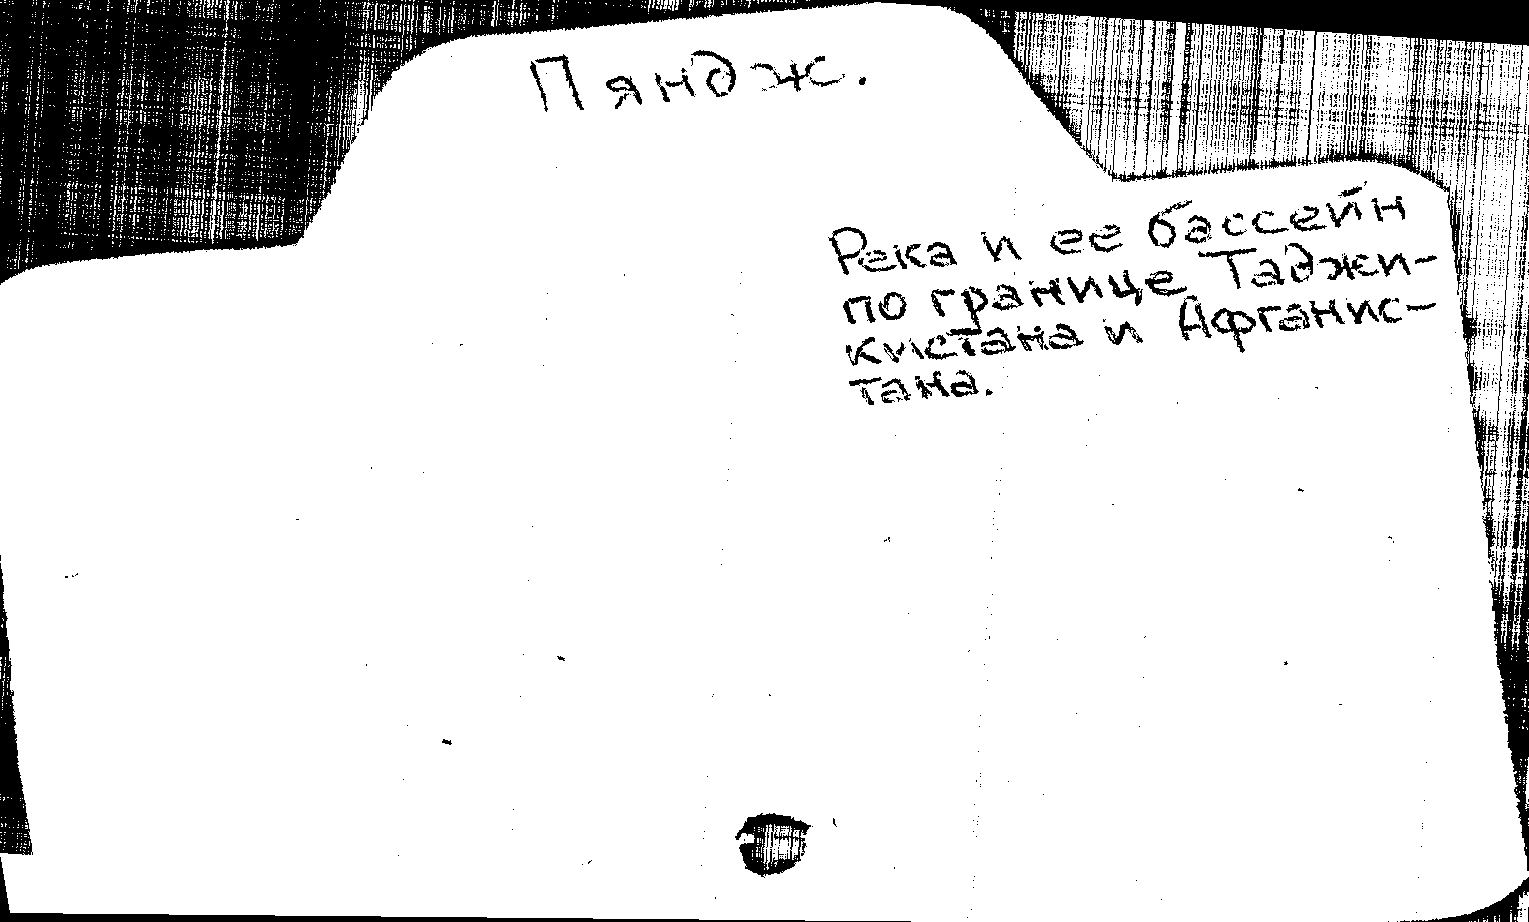 Пяндж.
Река и ее бассейн
по границе Таджи-
кистана и Афганис-
тана.